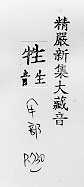 精嚴新集大藏音
牲生
音
(牛部
P.730)